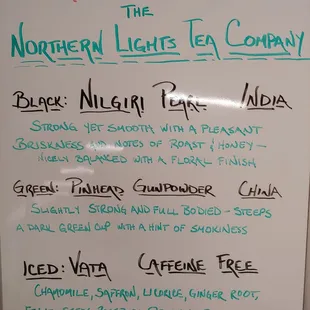 THE
NORTHERN LIGHTS TEA COMPANY
BLACK: NILGIRI PEARL INDIA
STRONG YET SMOOTH WITH A PLEASANT
BRISKNESS AND NOTES OF ROAST & HONEY –
NICELY BALANCED WITH A FLORAL FINISH
GREEN: PINHEAD GUNPOWDER CHINA
SLIGHTLY STRONG AND FULL BODIED – STEEPS
A DARK GREEN CUP WITH A HINT OF SMOKINESS
ICED: VATA CAFFEINE FREE
CHAMOMILE, SAFFRON, LICORICE, GINGER ROOT,